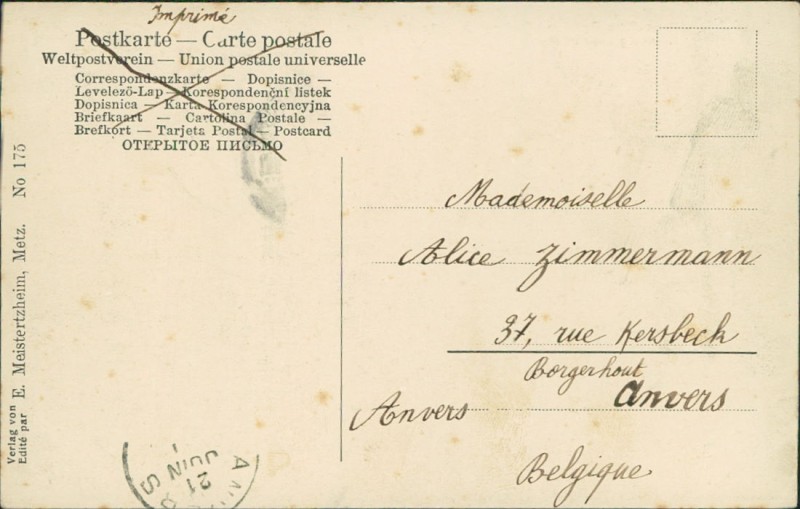 Imprimé
Postkarte — Carte postale
Weltpostverein — Union postale universelle
Correspondenzkarte — Dopisnice —
Levelező-Lap — Korespondenční listek
Dopisnica — Karta Korespondencyjna
Briefkaart — Cartolina Postale —
Brefkort — Tarjeta Postal — Postcard
ОТКРЫТОЕ ПИСЬМО
Mademoiselle
Alice Zimmermann
37, rue Kersbeck
Borgerhout
Anvers
Anvers
Belgique
Verlag von
Edité par E. Meistertzheim, Metz. No 175
21
JUIN